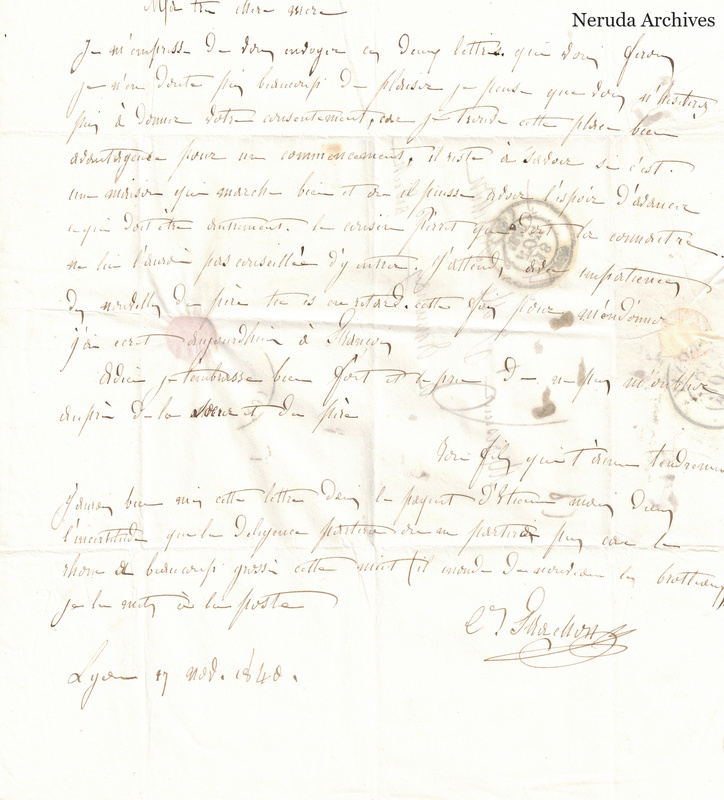 Neruda Archives
Ma très chère mère
Je m'empresse de vous envoyer ces deux lettres qui vous feront
je n'en doute pas beaucoup de plaisir je pense que vous n'hésiterez
pas à donner votre consentement, car je trouve cette place bien
avantageuse pour un commencement, il reste à savoir si c'est
une maison qui marche bien et où il puisse avoir l'espoir d'avancer
ce qui doit être autrement. le cousin Pierret qui doit la connaitre
ne lui l'auroit pas conseillée d'y entrer. J'attend avec impatience
des nouvelles du père
j'ai ecrit aujourd'hui à
adieu je t'embrasse bien fort et te prie de ne pas m'oublier
auprès de la soeur et du père
ton fils qui t'aime tendrement
J'aurai bien mis cette lettre dans le paquet d'Etienne mais dans
l'incertitude que la diligence partira ou ne partira pas car le
rhone a beaucoup grossi cette nuit (il inonde de nouveau les brotteaux
je la mets à la poste
Lyon 17 nov. 1840.